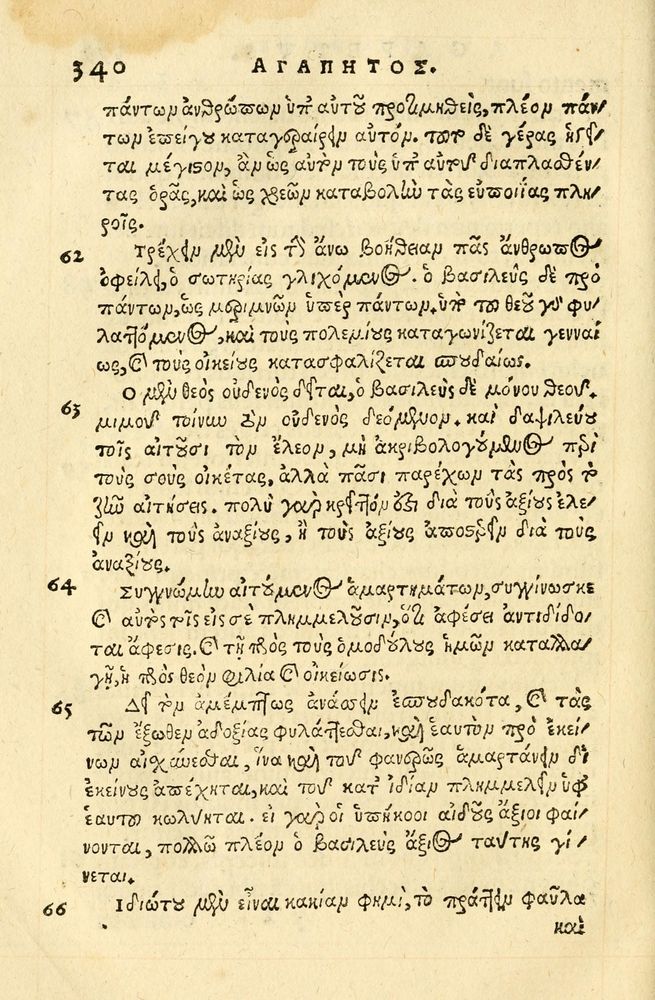 340 ΑΓΑΠΗΤΟΣ.
πάντων ἀνθρώπων ὑπ' αὐτοῦ προτιμηθεὶς, πλέον πάν-
των ἐπείγου καταγεραίρειν αὐτόν. τοῦτο δὲ γέρας ἡγεῖ-
ται μέγιστον, ἂν ὡς αὐτὸν τοὺς ὑπ' αὐτοῦ διαπλασθέν-
τας ὁρᾷς, καὶ ὡς χρεῶν καταβολὴν τὰς εὐποιΐας πλη-
ροῖς.
62 Τρέχειν μὲν εἰς τὴν ἄνω βοήθειαν πᾶς ἄνθρωπος
ὀφείλει, ὁ σωτηρίας γλιχόμενος. ὁ βασιλεὺς δὲ πρὸ
πάντων, ὡς μεριμνῶν ὑπὲρ πάντων. ὑπὸ τοῦ θεοῦ γὰρ φυ-
λαττόμενος, καὶ τοὺς πολεμίους καταγωνίζεται γενναί
ως, καὶ τοὺς οἰκείους κατασφαλίζεται σπουδαίως.
63 Ο μὲν θεὸς οὐδενὸς δεῖται, ὁ βασιλεὺς δὲ μόνου θεοῦ.
μιμοῦ τοίνυν τὸν οὐδενὸς δεόμενον. καὶ δαψιλεύου
τοῖς αἰτοῦσι τὸν ἔλεον, μὴ ἀκριβολογούμενος περὶ
τοὺς σοὺς οἰκέτας, ἀλλὰ πᾶσι παρέχων τὰς πρὸς τὸ
ζῆν αἰτήσεις. πολὺ γὰρ κρεῖττόν ἐστι διὰ τοὺς ἀξίους ἐλε-
εῖν καὶ τοὺς ἀναξίους, ἢ τοὺς ἀξίους ἀποστερεῖν διὰ τοὺς
ἀναξίους.
64 Συγγνώμην αἰτούμενος ἁμαρτημάτων, συγγίνωσκε
καὶ αὐτὸς τοῖς εἰς σὲ πλημμελοῦσιν, ὅτι ἀφέσει ἀντιδίδο-
ται ἄφεσις. καὶ τῇ πρὸς τοὺς ὁμοδούλους ἡμῶν καταλλα-
γῇ, ἡ πρὸς θεὸν φιλία καὶ οἰκείωσις.
65 Δεῖ τὸν ἀμέμπτως ἀνάσσειν ἐσπουδακότα, καὶ τὰς
τῶν ἔξωθεν ἀδοξίας φυλάττεσθαι, καὶ ἑαυτὸν πρὸ ἐκεί-
νων αἰσχύνεσθαι, ἵνα καὶ τοῦ φανερῶς ἁμαρτάνειν δι'
ἐκείνους ἀπέχηται, καὶ τοῦ κατ' ἰδίαν πλημμελεῖν ὑφ'
ἑαυτοῦ κωλύηται. εἰ γὰρ οἱ ὑπήκοοι αἰδοῦς ἄξιοι φαί-
νονται, πολλῷ πλέον ὁ βασιλεὺς ἄξιος ταύτης γί-
νεται.
66 Ιδιώτου μὲν εἶναι κακίαν φημὶ, τὸ πράττειν φαῦλα
καὶ